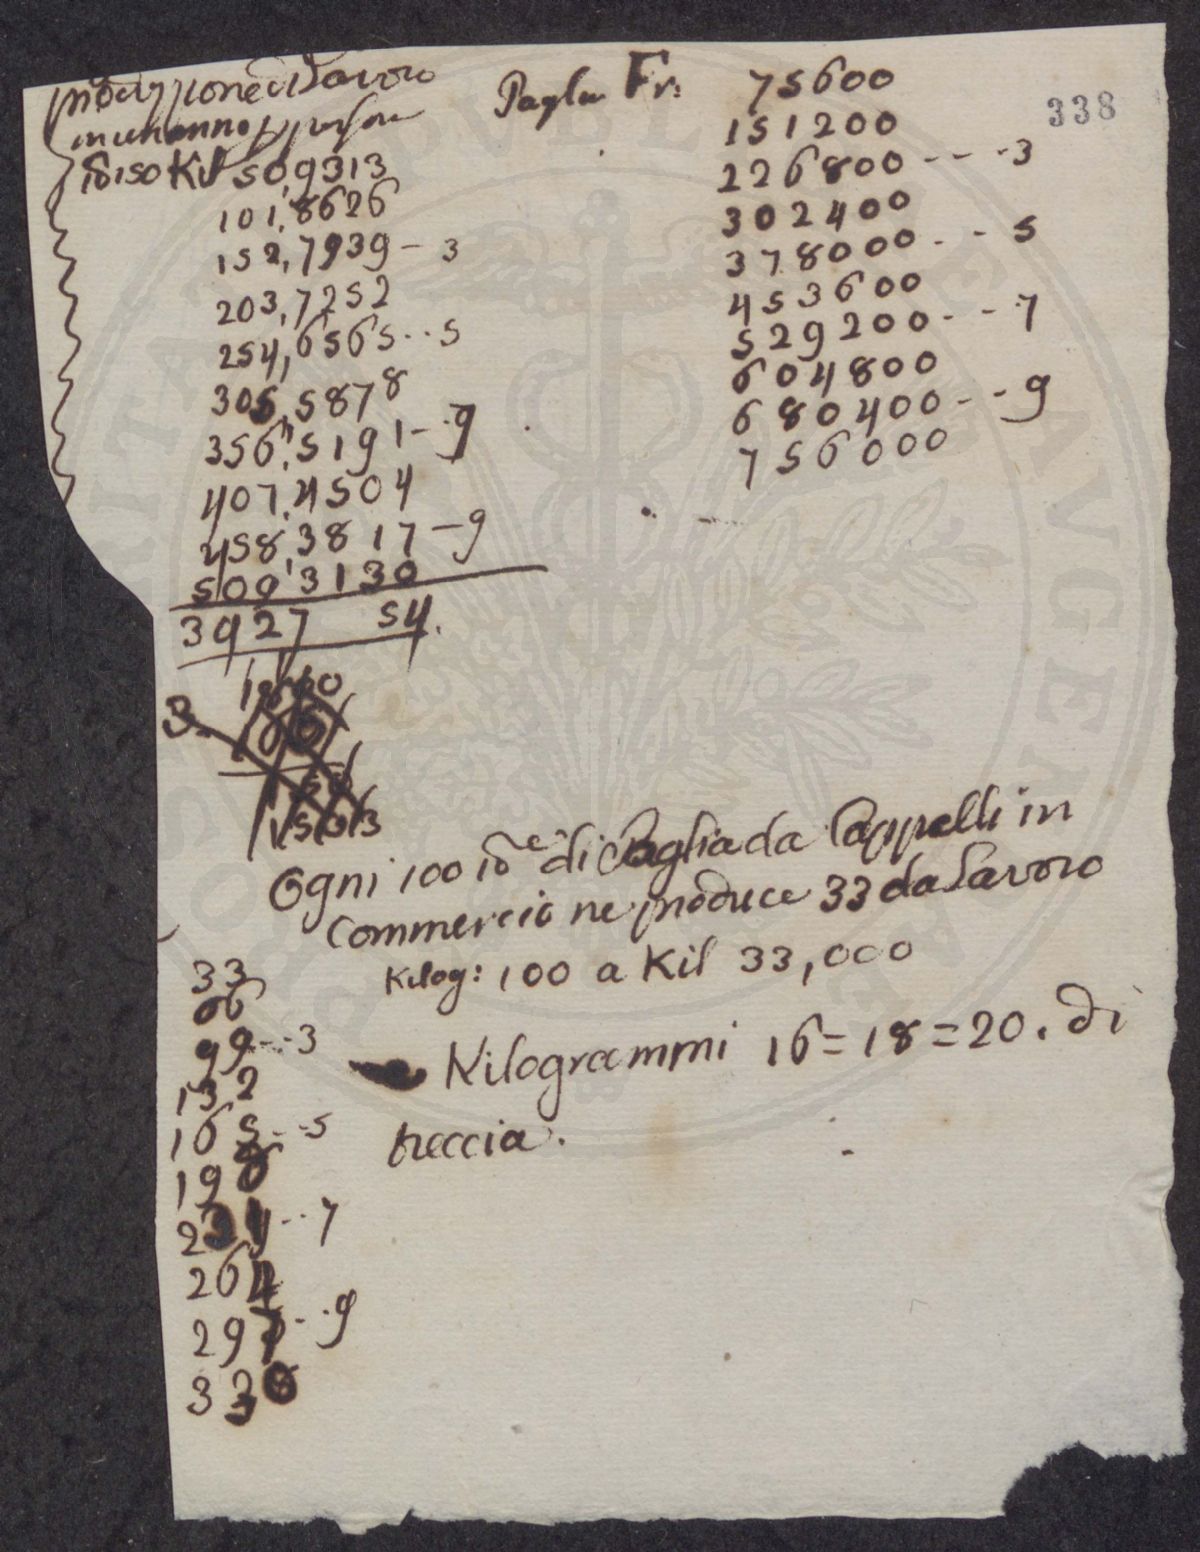 produzione di Lavoro
in un anno p persona
150 Kil 50,9313
101,8626
152,7939 - 3
203,7252
254,6565 - - 5
305,5878
356,5191 - - 7
407,4504
458,3817 - 9
509,3130
3927 54.
Paglia Fr: 75600
151200
226800 - - - 3
302400
378000 - - - 5
453600
529200 - - - 7
604800
680400 - - - 9
756000
338
3.
Ogni 100 10e di Paglia da Cappelli in
Commercio ne produce 33 da Lavoro
Kilog: 100 a Kil 33,000
Kilogrammi 16=18=20. di
treccia.
33
66
99 - - 3
132
165 - - 5
198
231 - - 7
264
297 - - 9
330